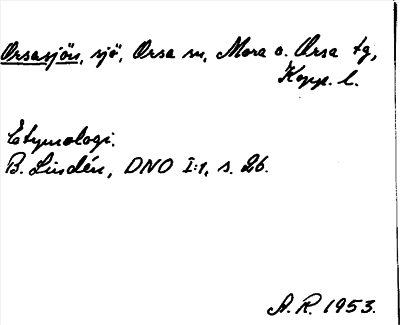 Orsasjön, sjö, Orsa sn, Mora o. Orsa tg,
Kopp. l.
Etymologi.
B. Lindén, DNO I:1, s. 26.
A. R. 1953.